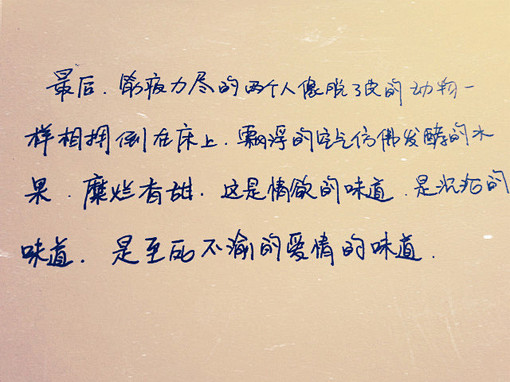 最后.筋疲力尽的两个人像脱了皮的动物一
样相拥倒在床上.飘浮的空气仿佛发酵的水
果.糜烂香甜.这是情欲的味道.是沉沦的
味道.是至死不渝的爱情的味道.